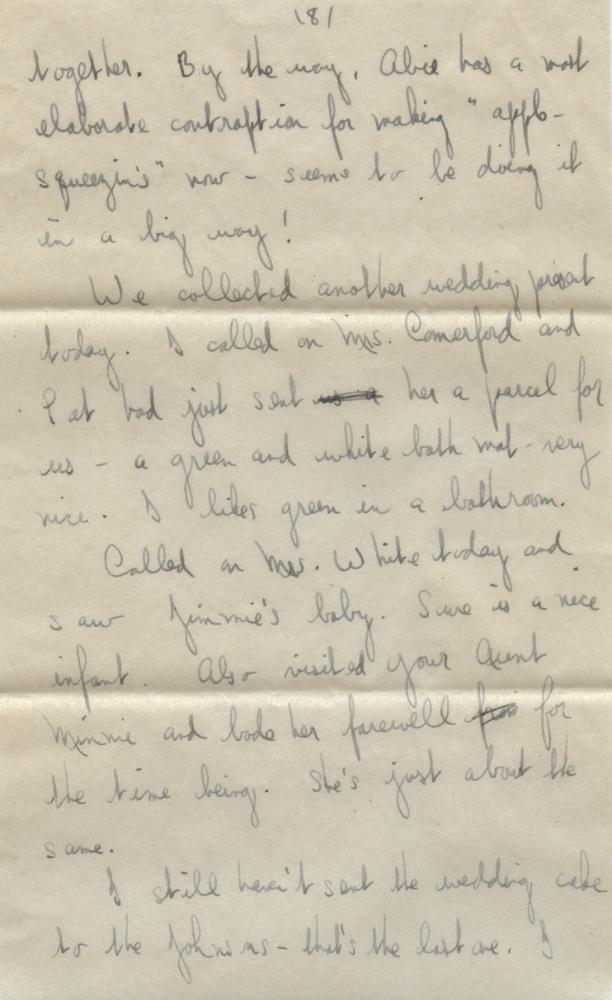 \8/
together. By the way, Abie has a most
elaborate contraption for making "apple-
squeezin's" now - seems to be doing it
in a big way!
We collected another wedding present
today. I called on Mrs. Comerford and
Pat had just sent us a her a parcel for
us - a green and white bath mat - very
nice. I likes green in a bathroom.
Called on Mrs. White today and
saw Jimmie's baby. Sure is a nice
infant. Also visited your Aunt
Minnie and bade her farewell for
the time being. She's just about the
same.
I still haven't sent the wedding cake
to the Johnsons - that's the last one. I